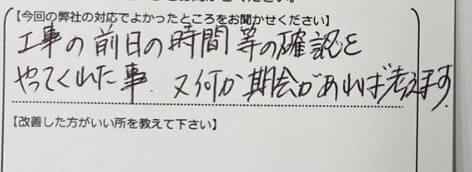 【今回の弊社の対応でよかったところをお聞かせください】
工事の前日の時間等の確認を
やってくれた事. 又何か期会があれば考えます.
【改善した方がいい所を教えて下さい】